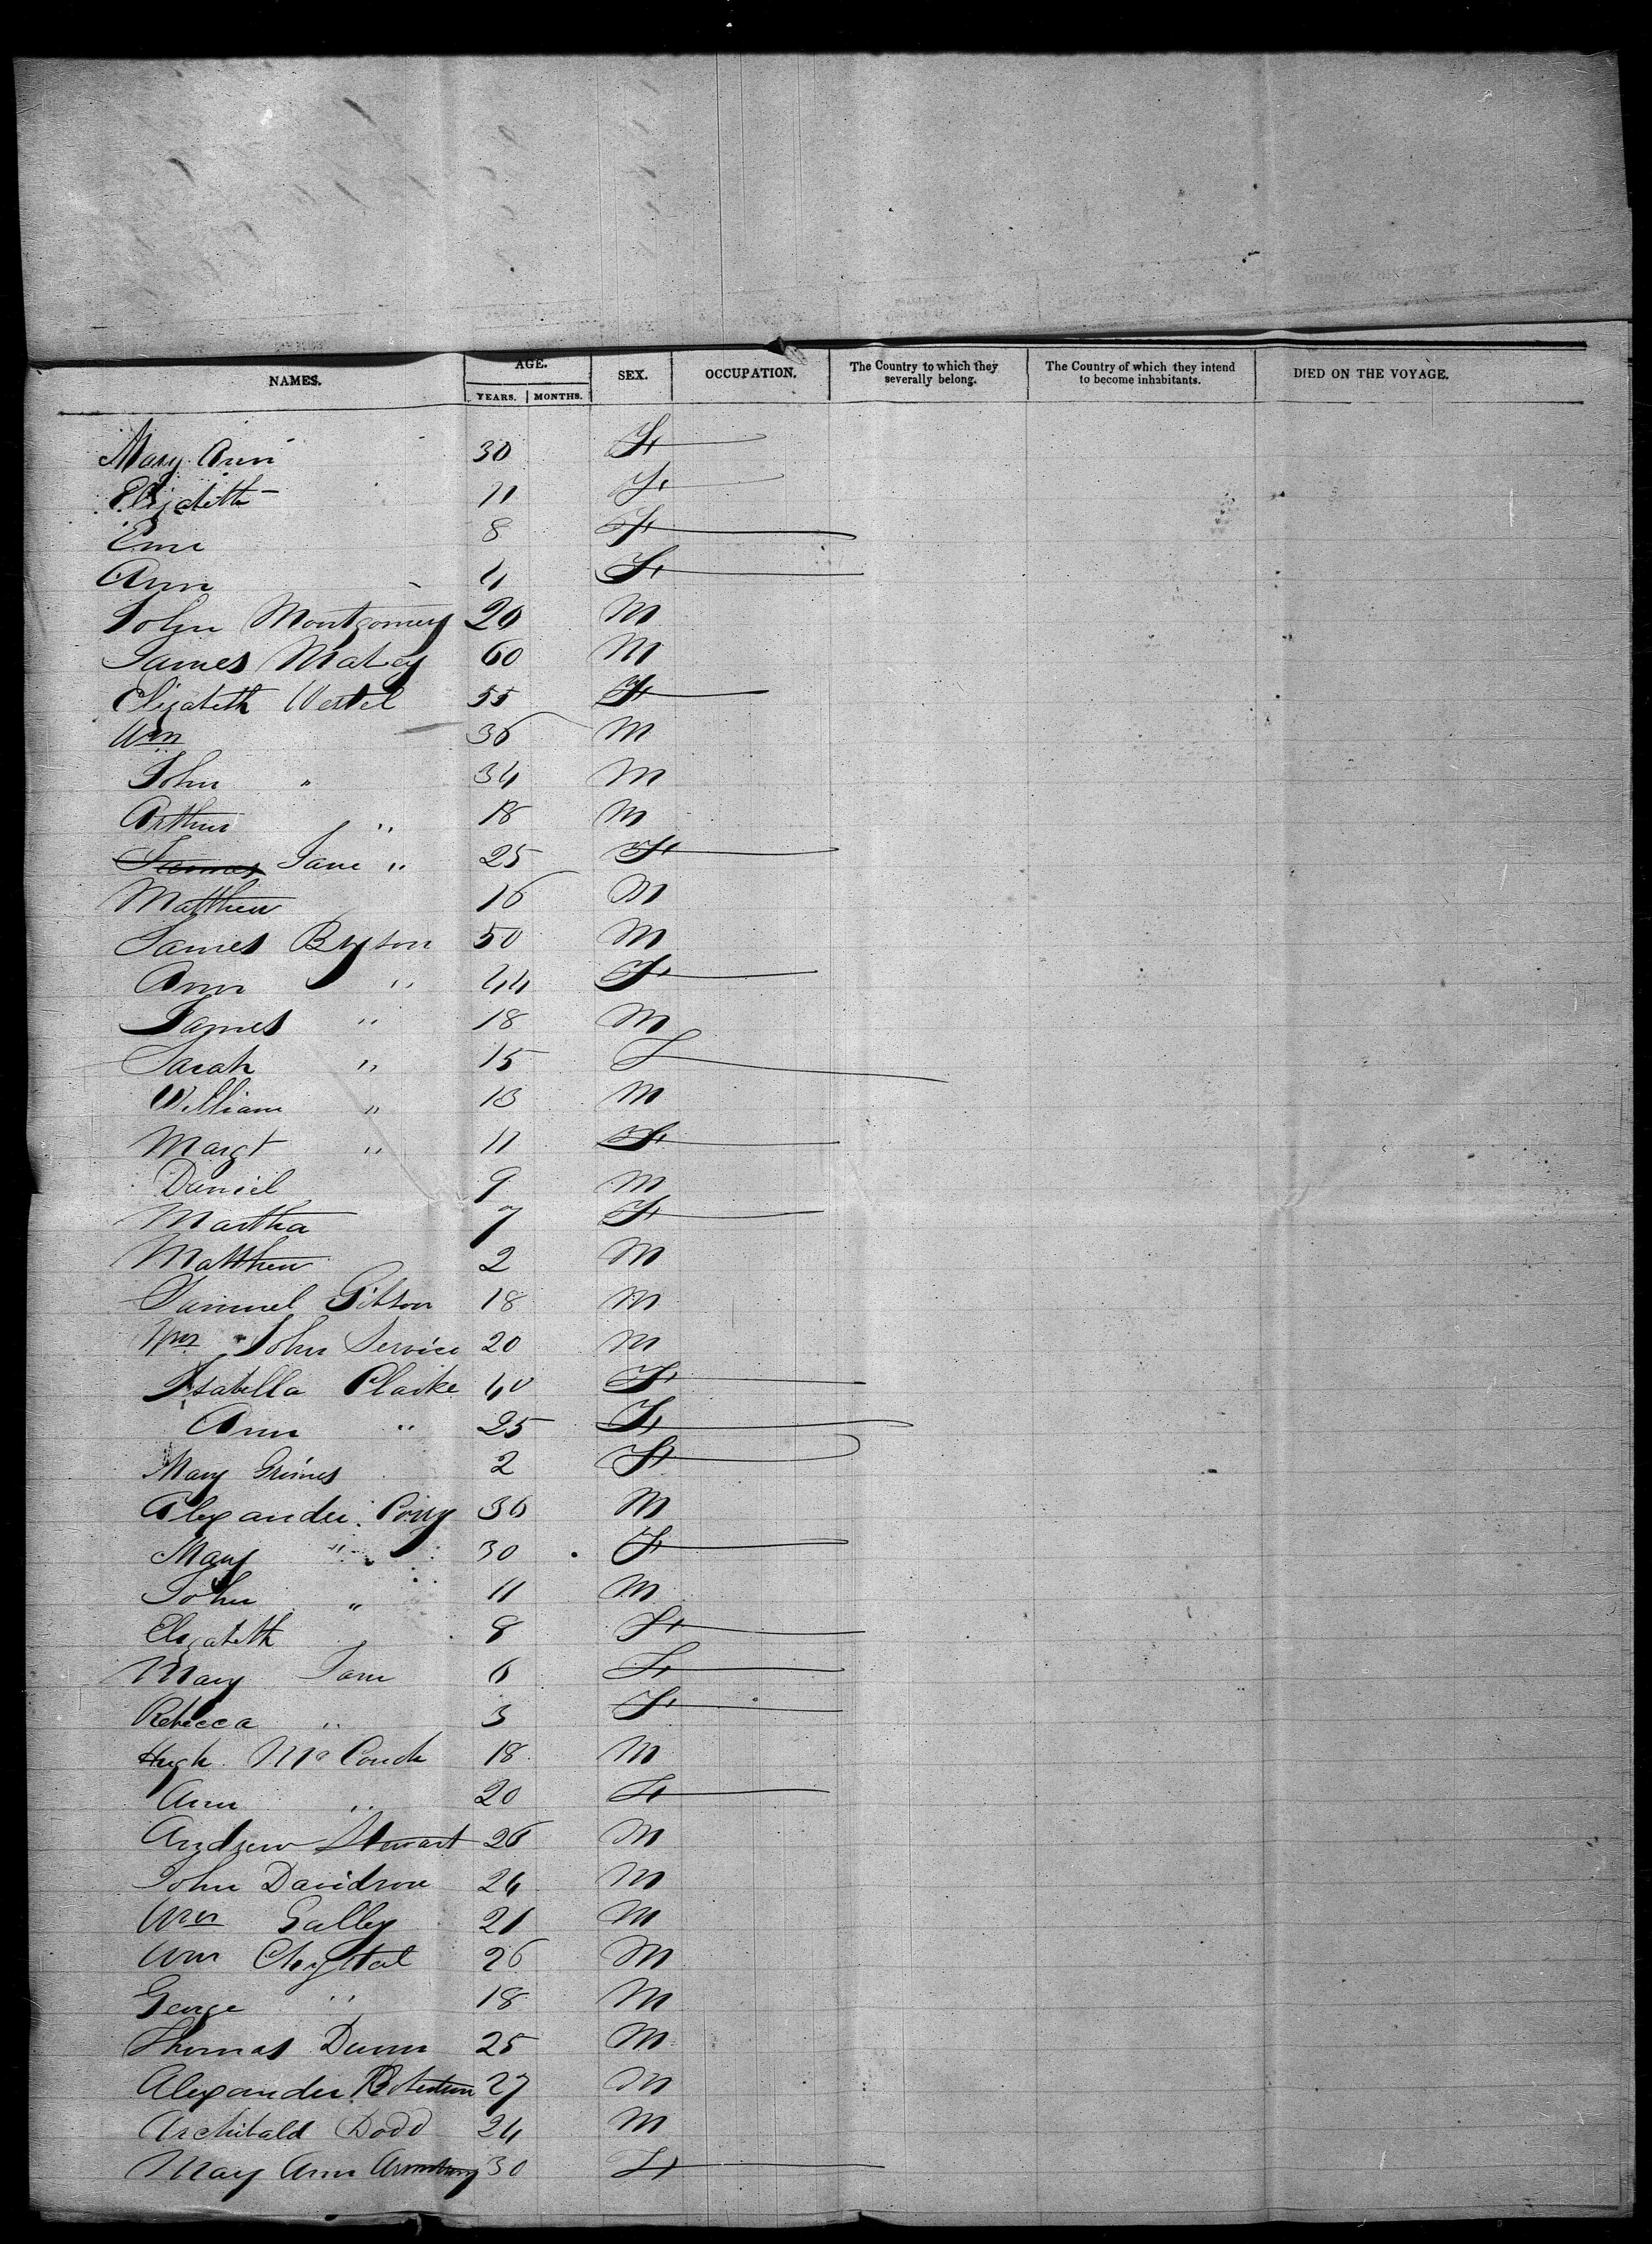 NAMES. AGE. YEARS. MONTHS. SEX. OCCUPATION. The Country to which they severally belong. The Country of which they intend to become inhabitants. DIED ON THE VOYAGE.
Mary Ann 30 F
Elizabeth 11 F
8 F
Ann 4 F
John Montgomery 20 M
James 60 M
Elizabeth Vestel 55 F
Wm 36 M
John " 34 M
Arthur " 18 M
James Jane " 25 F
Matthew 16 M
James Bryson 50 M
Ann " 44 F
James " 18 M
Sarah " 15 F
William " 13 M
Margt " 11 F
Daniel 9 M
Martha 7 F
Matthew 2 M
Samuel Gibson 18 M
Wm John Service 20 M
Isabella Clarke 40 F
Ann " 25 F
Mary Grimes 2 F
Alexander 36 M
Mary " 30 F
John " 11 M
Elizabeth 8 F
Mary Jane 6 F
Rebecca " 3 F
Hugh 18 M
Ann " 20 F
Andrew Stewart 26 M
John Davidson 24 M
Wm Galley 21 M
Wm Chrystal 26 M
George " 18 M
Thomas Dunn 25 M
Alexander Robertson 27 M
Archibald Dodd 24 M
Mary Ann Armstrong 30 F